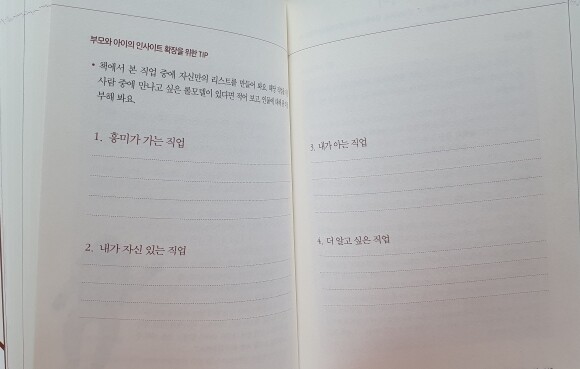 부모와 아이의 인사이트 확장을 위한 TIP
• 책에서 본 직업 중에 자신만의 리스트를 만들어 봐요. 해당
사람 중에 만나고 싶은 롤모델이 있다면 적어 보고, 인물에 대해
부해 봐요.
1. 흥미가 가는 직업
2. 내가 자신 있는 직업
3. 내가 아는 직업
4. 더 알고 싶은 직업